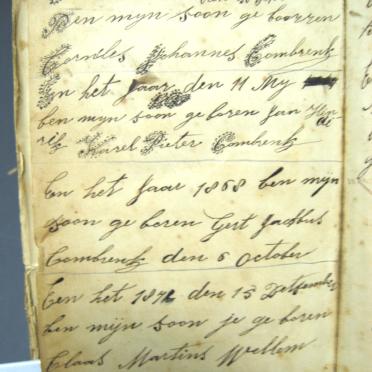 Ben mijn soon ge boorren
Corniles Johannes Combrenk
En het Jaar den 11 My
ben mijn soon ge boren Jan Hen
rik Karel Pieter Combrenk
En het Jaar 1868 ben mijn
soon ge boren Gert Jacobus
Combrenk den 6 October
Een het 1871 den 15
ben mijn soon je ge boren
Claas Martins Wellem